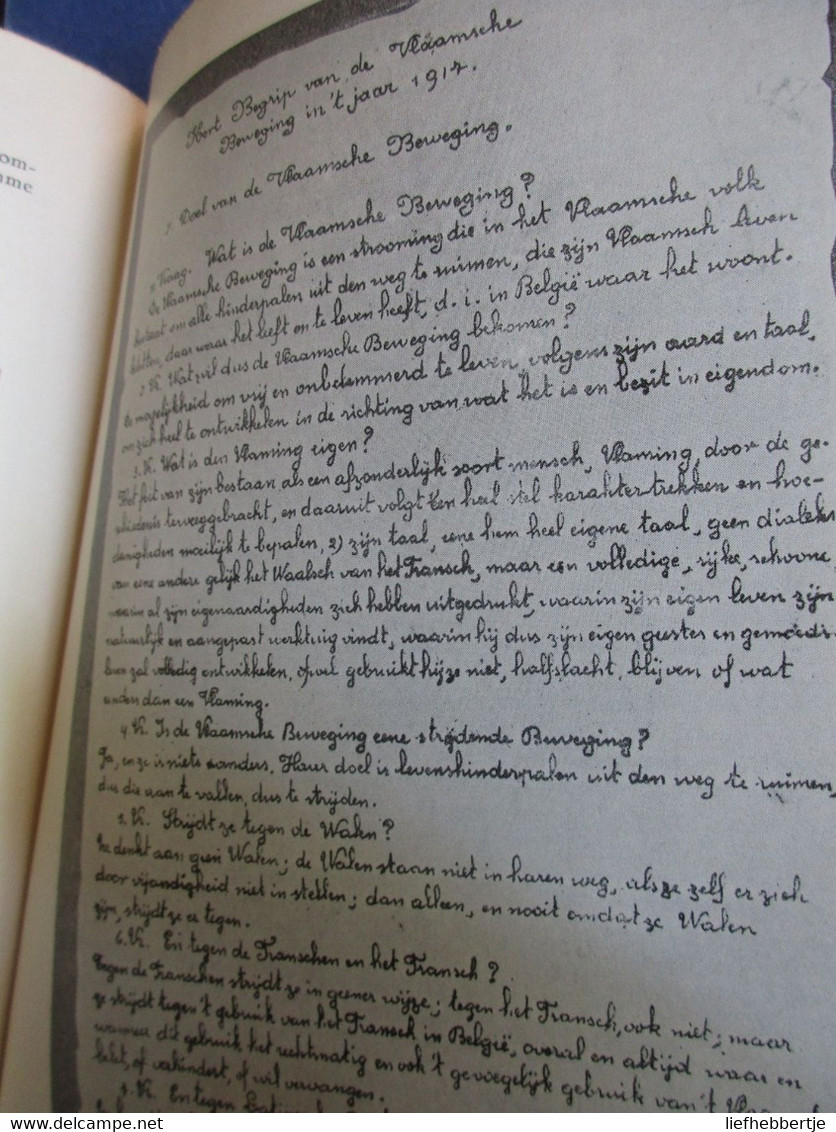 om-
mme
Kort Begrip van de Vlaamsche
Beweging in 't jaar 1917.
1. Doel van de Vlaamsche Beweging.
1. Vraag. Wat is de Vlaamsche Beweging?
De Vlaamsche Beweging is een strooming die in het Vlaamsche volk
bestaat om alle hinderpalen uit den weg te ruimen, die zijn Vlaamsch leven
letten, daar waar het heeft te leven heeft, d. i. in België waar het woont.
2. V. Wat wil dus de Vlaamsche Beweging bekomen?
De mogelijkheid om vrij en onbelemmerd te leven, volgens zijn aard en taal,
om zich heel te ontwikkelen in de richting van wat het is en bezit in eigendom.
3. V. Wat is den Vlaming eigen?
Het feit van zijn bestaan als een afzonderlijk soort mensch, Vlaming, door de ge-
schiedenis teweeggebracht, en daaruit volgt een heel stel karaktertrekken en hoe-
danigheden moeilijk te bepalen, 2) zijn taal, eene hem heel eigene taal, geen dialekt
van eene andere gelijk het Waalsch van het Fransch, maar een volledige, rijke, schoone,
waarin al zijn eigenaardigheden zich hebben uitgedrukt, waarin zijn eigen leven zijn
natuurlijk en aangepast werktuig vindt, waarin hij dus zijn eigen geestes en gemoeds-
leven zal volledig ontwikkelen, ofwel gebruikt hij ze niet, halfslacht, blijven of wat
anders dan een Vlaming.
4. V. Is de Vlaamsche Beweging eene strijdende Beweging?
Ja, en ze is niets anders. Haar doel is levenshinderpalen uit den weg te ruimen,
dus die aan te vallen, dus te strijden.
5. V. Strijdt ze tegen de Walen?
Ze denkt aan geen Walen; de Walen staan niet in haren weg, als ze zelf er zich
door vijandigheid niet in stellen; dan alleen, en nooit omdat ze Walen
zijn, strijdt ze er tegen.
6. V. En tegen de Franschen en het Fransch?
Tegen de Franschen strijdt ze in geener wijze; tegen het Fransch, ook niet; maar
ze strijdt tegen 't gebruik van het Fransch in België, overal en altijd waar en
wanneer dit gebruik het rechtmatig en ook 't gevoegelijk gebruik van 't
belet, of verhindert, of wil vervangen.
7. V. En tegen
liefhebbertje